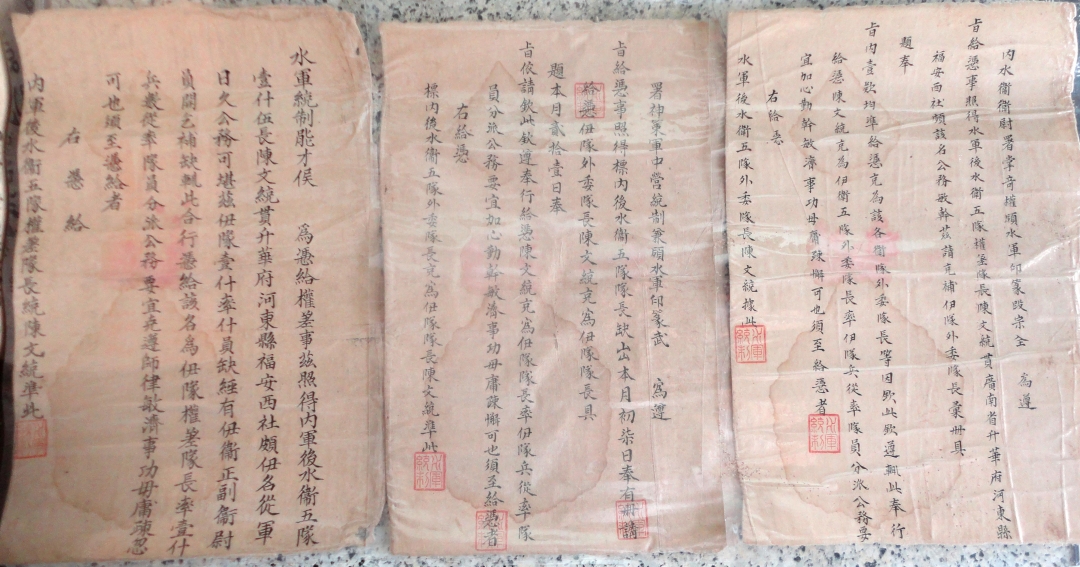 水軍統制能才侯 為憑給權差事茲照得內軍後水衛五隊
壹什伍長陳文統貫升華府河東縣福安西社頗伊名從軍
日久公務可堪茲伊隊壹什率什員缺經有伊衛正副衛尉
員開乞補缺輒此合行憑給該名為伊隊權差隊長率壹什
兵衆從率隊員分派公務要宜克遵師律敏濟事功毋庸踈忽
可也須至憑給者
右憑給
內軍後水衛五隊權差隊長統陳文統準此
署神東軍中營統制兼領水軍印篆武 為遵
旨給憑事照得標內後水衛五隊隊長缺出本月初柒日奉有冊請
給憑伊隊外委隊長陳文統充為伊隊隊長具
題本月貳拾壹日奉
旨依請欽此欽遵奉行給憑陳文統充為伊隊隊長率伊隊兵從率隊
員分派公務要宜加心勤幹敏濟事功毋庸踈懈可也須至給憑者
右給憑
標內後水衛五隊外委隊長充為伊隊隊長陳文統準此
水軍統制
內水衛衛尉署掌奇權領水軍印篆段宗全 為遵
旨給憑事照得水軍後水衛五隊權差隊長陳文統貫廣南省升華府河東縣
福安西社頃該名公務敏幹茲請充補伊隊外委隊長彙冊具
題奉
旨內壹欵均準給憑充為該各衛隊外委隊長等因欽此欽遵輒此奉行
給憑陳文統充為伊衛五隊外委隊長率伊隊兵從率隊員分派公務要
宜加心勤幹敏濟事功毋庸踈懈可也須至給憑者
右給憑
水軍後水衛五隊外委隊長陳文統據此
水軍統制